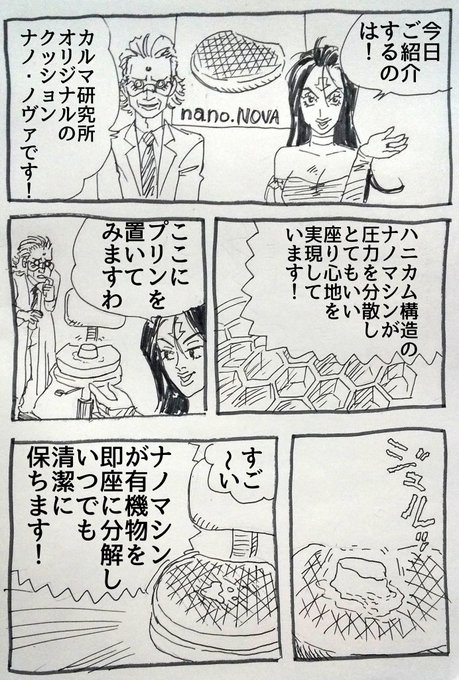 今日
ご紹介
するの
は！
nano.NOVA
カルマ研究所
オリジナルの
クッション
ナノ・ノヴァです！
ハニカム構造の
ナノマシンが
圧力を分散し
とてもいい
座り心地を
実現して
います！
ここに
プリンを
置いて
みますわ
ジュルッ
すご
〜い
ナノマシン
が有機物を
即座に分解し
いつでも
清潔に
保ちます！